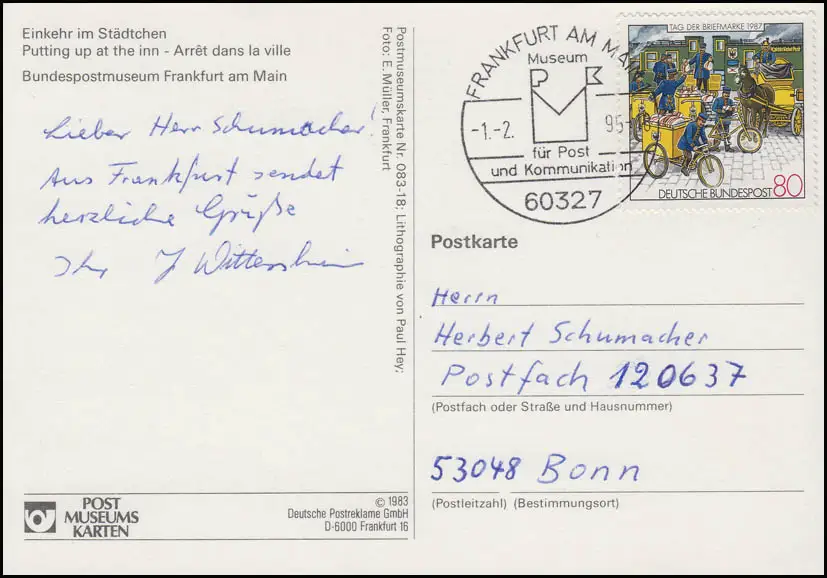 Einkehr im Städtchen
Putting up at the inn - Arrêt dans la ville
Bundespostmuseum Frankfurt am Main
Lieber Herr Schumacher!
Aus Frankfurt sendet
herzliche Grüße
Ihr J Wittershein
POST
MUSEUMS
KARTEN
© 1983
Deutsche Postreklame GmbH
D-6000 Frankfurt 16
Postmuseumskarte Nr. 083-18; Lithographie von Paul Hey;
Foto: E. Müller, Frankfurt
FRANKFURT AM MAIN
Museum
-1.-2. 95-
für Post
und Kommunikation
60327
TAG DER BRIEFMARKE 1987
DEUTSCHE BUNDESPOST 80
Postkarte
Herrn
Herbert Schumacher
Postfach 120637
(Postfach oder Straße und Hausnummer)
53048 Bonn
(Postleitzahl) (Bestimmungsort)